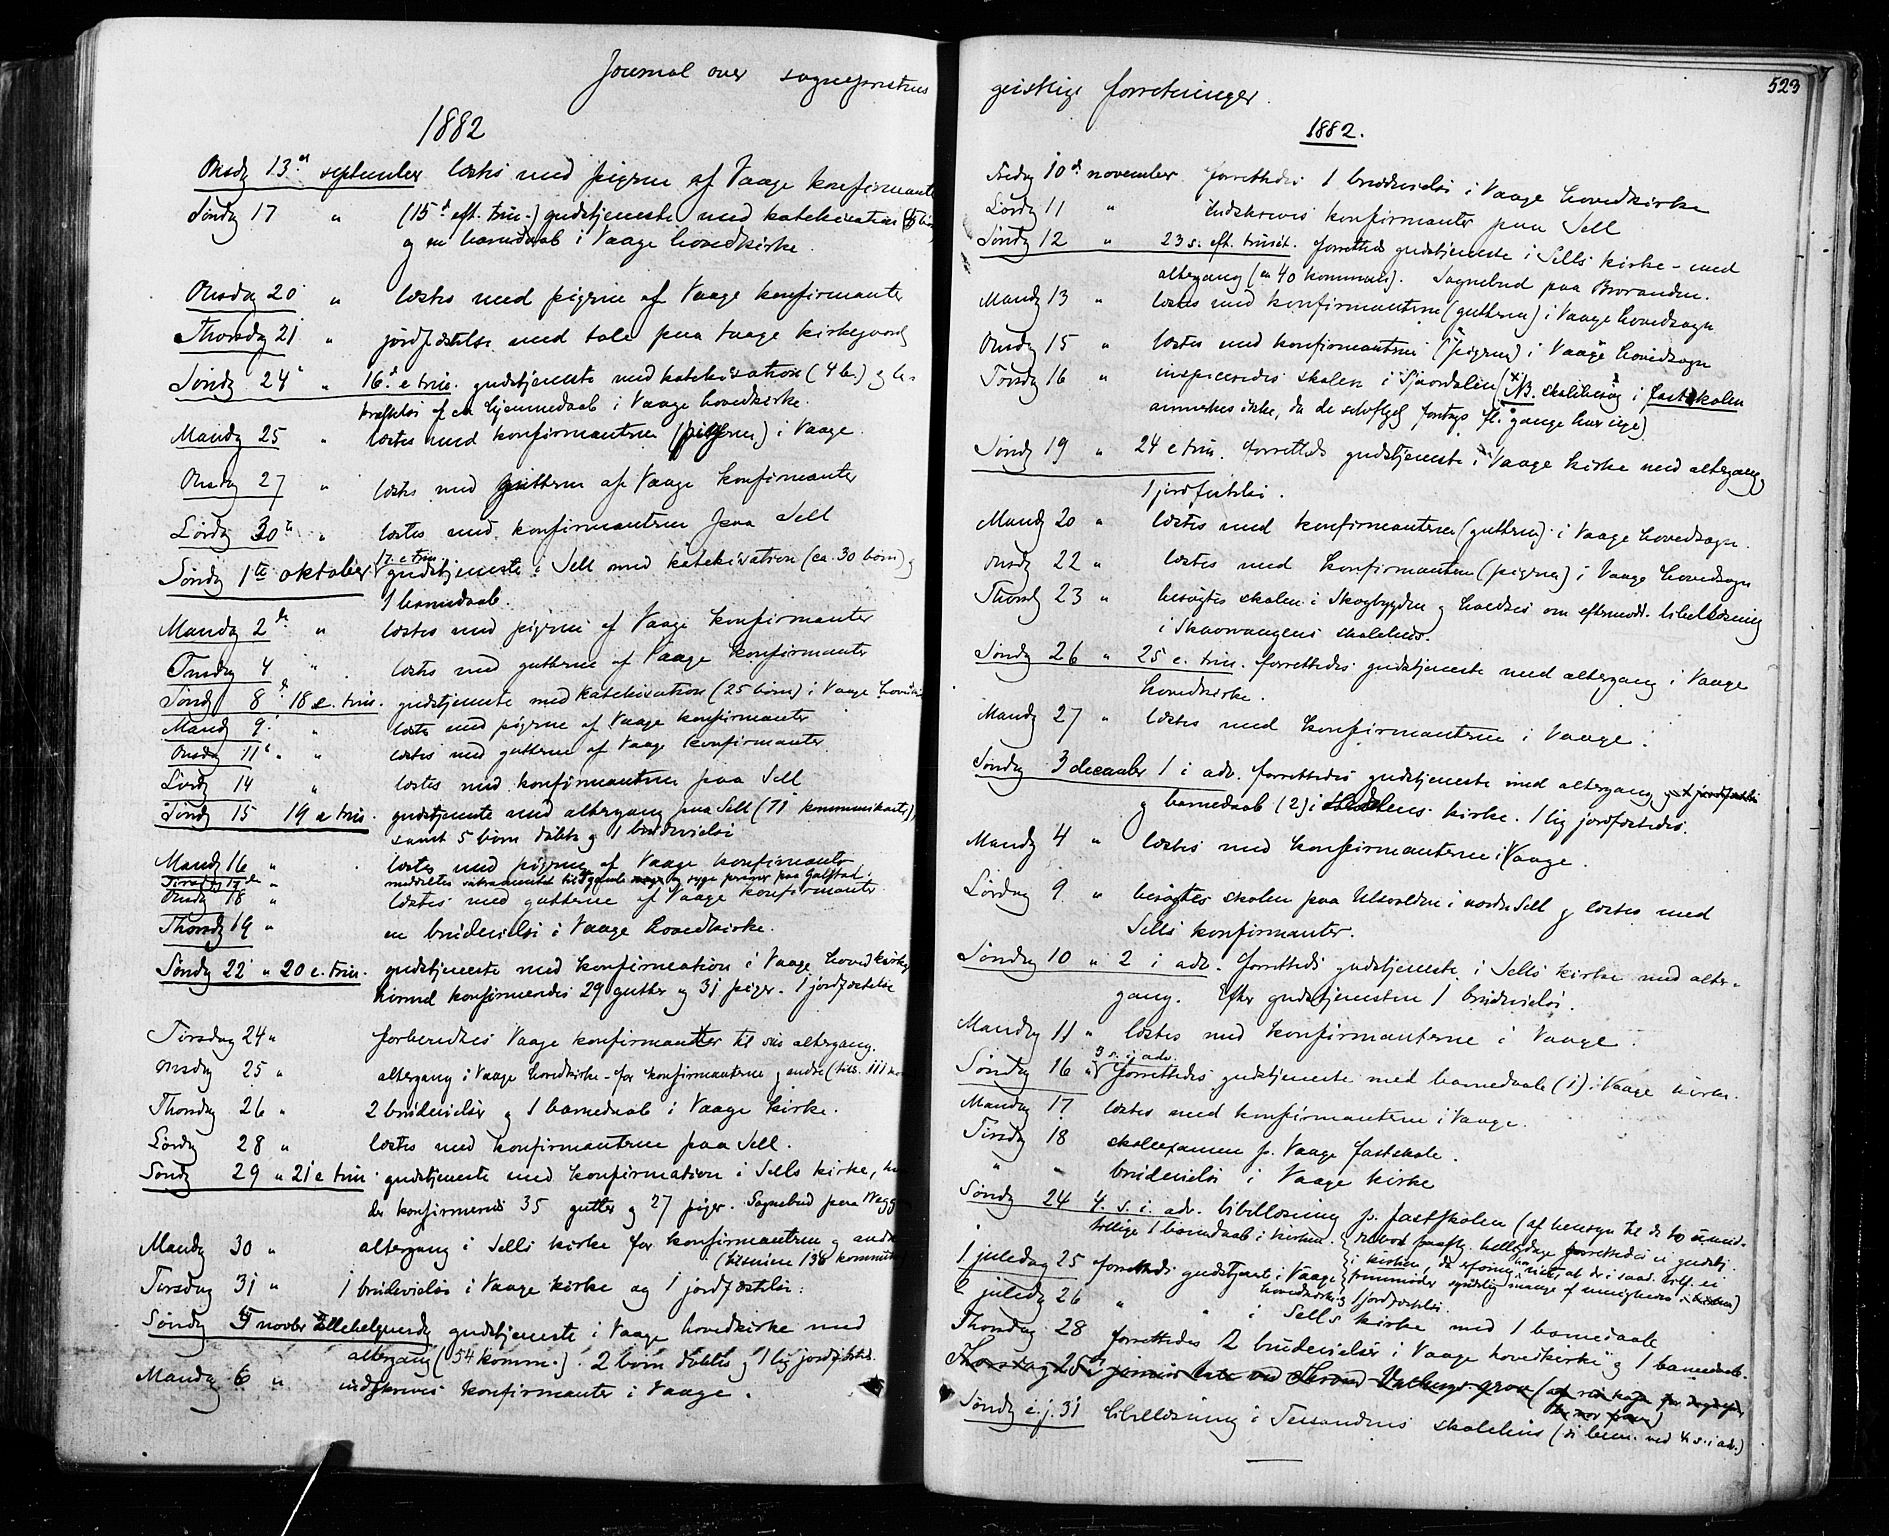 Journal over sognepræstens
1882
Onsdag 13de september læstes med pigerne af Vaage konfirmanter
Søndag 17 " (15de eft. trin.) gudstjeneste med katekisation
og en barnedaab i Vaage hovedkirke.
Onsdag 20 " læstes med pigerne af Vaage konfirmanter
Thorsdag 21 " jordfæstelse med tale paa Vaage kirkegaard
Søndag 24de " 16de e. trin. gudstjeneste med katekisation (4 b.) og be-
kræftelse af en hjemmedaab i Vaage hovedkirke.
Mandag 25 " læstes med konfirmanterne (pigerne) i Vaage.
Onsdag 27 " læstes med gutterne af Vaage konfirmanter
Lørdag 30te " læstes med konfirmanterne paa Sell
Søndag 1ste oktober 17 e. trin. gudstjeneste i Sell med katekisation (ca. 30 børn) og
1 barnedaab.
Mandag 2den " læstes med pigerne af Vaage konfirmanter
Onsdag 4 " læstes med gutterne af Vaage konfirmanter
Søndag 8de 18 e. trin. gudstjeneste med katekisation (25 børn) i Vaage hovedk.
Mandag 9de " læstes med pigerne af Vaage konfirmanter
Onsdag 11te " læstes med gutterne af Vaage konfirmanter
Lørdag 14 " læstes med konfirmanterne paa Sell
Søndag 15 19 e. trin. gudstjeneste med altergang paa Sell (71 kommunikanter),
samt 5 børn døbte og 1 brudevielse
Mandag 16 " læstes med pigerne af Vaage konfirmanter
Tirsdag 17de " meddeltes sakramentet til gamle og syge personer paa
Onsdag 18 " læstes med gutterne af Vaage konfirmanter
Thorsdag 19 " en brudevielse i Vaage hovedkirke.
Søndag 22 " 20 e. trin. gudstjeneste med konfirmation i Vaage hovedkirke,
hvorved konfirmeredes 29 gutter og 31 piger. 1 jordfæstelse
Tirsdag 24 " forberedtes Vaage konfirmanter til sin altergang.
Onsdag 25 " altergang i Vaage hovedkirke - for konfirmanterne og andre (tils. 111
Thorsdag 26 " 2 brudevielser og 1 barnedaab i Vaage kirke.
Lørdag 28 " læstes med konfirmanterne paa Sell.
Søndag 29 " 21 e. trin. gudstjeneste med konfirmation i Sells kirke,
der konfirmeredes 35 gutter og 27 piger. Sognebud paa
Mandag 30 " altergang i Sells kirke for konfirmanterne og andre
(tilsammen 138
Tirsdag 31 " 1 brudevielse i Vaage kirke og 1 jordfæstelse.
Søndag 5 novbr Allehelgensdag gudstjeneste i Vaage hovedkirke med
altergang (54 komm.). 2 børn døbtes og 1 lig jordfæstedes.
Mandag 6 " indskreves konfirmanter i Vaage.
geistlige forretninger.
523
1882.
Fredag 10de november forrettedes 1 brudevielse i Vaage hovedkirke
Lørdag 11 " Indskreves konfirmanter paa Sell
Søndag 12 " 23 s. eft. trinit. forrettedes gudstjeneste i Sells kirke - med
altergang (ca 40 kommun.). Sognebud paa
Mandag 13 " læstes med konfirmanterne (gutterne) i Vaage hovedsogn
Onsdag 15 " læstes med konfirmanterne (pigerne) i Vaage hovedsogn
Torsdag 16 " inspiceredes skolen i Sjaardalen (NB. skolebesøg i fastskolen
anmerkes ikke, da de selvfølgel. foretages fl. gange hver uge)
Søndag 19 " 24 e trin. forrettedes gudstjeneste i Vaage kirke med altergang,
1 jordfæstelse.
Mandag 20 " læstes med konfirmanterne (gutterne) i Vaage hovedsogn.
Onsdag 22 " læstes med konfirmanterne (pigerne) i Vaage hovedsogn
Thorsdag 23 " besøgtes skolen i Skogbygden og holdtes om eftermidd. bibellæsning
i Skaarvangens skolehus.
Søndag 26 " 25 e. trin. forrettedes gudstjeneste med altergang i Vaage
hovedkirke.
Mandag 27 " læstes med konfirmanterne i Vaage.
Søndag 3 december 1 i adv. forrettedes gudstjeneste med altergang, og 1 jordfæstelse
og barnedaab (2) i kirke. 1 lig jordfæstedes.
Mandag 4 " læstes med konfirmanterne i Vaage.
Lørdag 9 " besøgtes skolen paa Ulsvolden i nordre Sell og læstes med
Sells konfirmanter.
Søndag 10 " 2 i adv. forrettedes gudstjeneste i Sells kirke med alter-
gang. Efter gudstjenesten 1 brudevielse.
Mandag 11 " læstes med konfirmanterne i Vaage.
Søndag 16 " 3 s. i adv. forrettedes gudstjeneste med barnedaab (1) i Vaage kirke.
Mandag 17 læstes med konfirmanterne i Vaage.
Tirsdag 18 skoleexamen p. Vaage fastskole.
" " brudevielse i Vaage kirke
Søndag 24 4. s. i. adv. bibellæsning p. fastskolen (af hensyn til de to
1 barnedaab i kirken. helligdage forrettedes ei gudstj.
i kirken, da erfaring har vist, at der i saad. tilf. ei
fremmøder synderlig mange af menigheden
1 juledag 25 forrettedes gudstjenst. i Vaage
hovedkirke og 1 jordfæstelse.
2 juledag 26 " " i Sells kirke med 1 barnedaab
Thorsdag 28 forrettedes 2 brudevielser i Vaage hovedkirke og 1 barnedaab.
Thorsdag 25de januar
Søndag e. j. 31 bibellæsning i Tessandens skolehus (se bem. ved 4 s. i adv.)